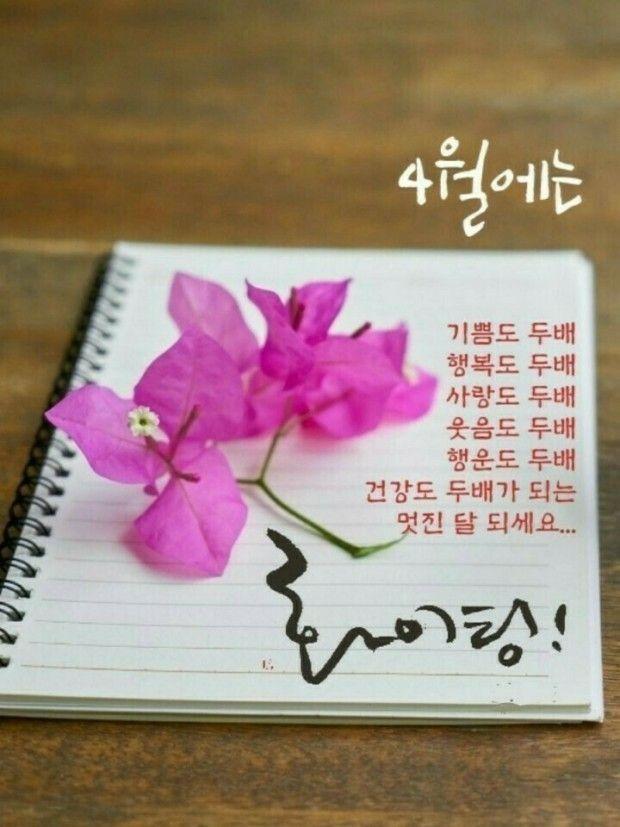 4월에는
기쁨도 두배
행복도 두배
사랑도 두배
웃음도 두배
행운도 두배
건강도 두배가 되는
멋진 달 되세요...
화이팅!